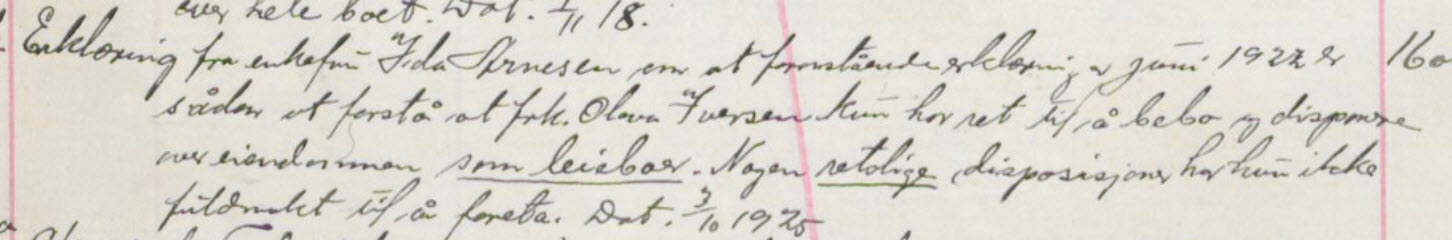 over hele boet. Dat. 1/11 18.
Erklæring fra enkefru Ida Arnesen om at foranstående erklæring av juni 1922 er 160
sådan at forstå at frk. Olava Iversen kun har ret til å bebo og disponere
over eiendommen som leieboer. Nogen retslige disposisjoner har hun ikke
fuldmakt til å foreta. Dat. 3/10 1925